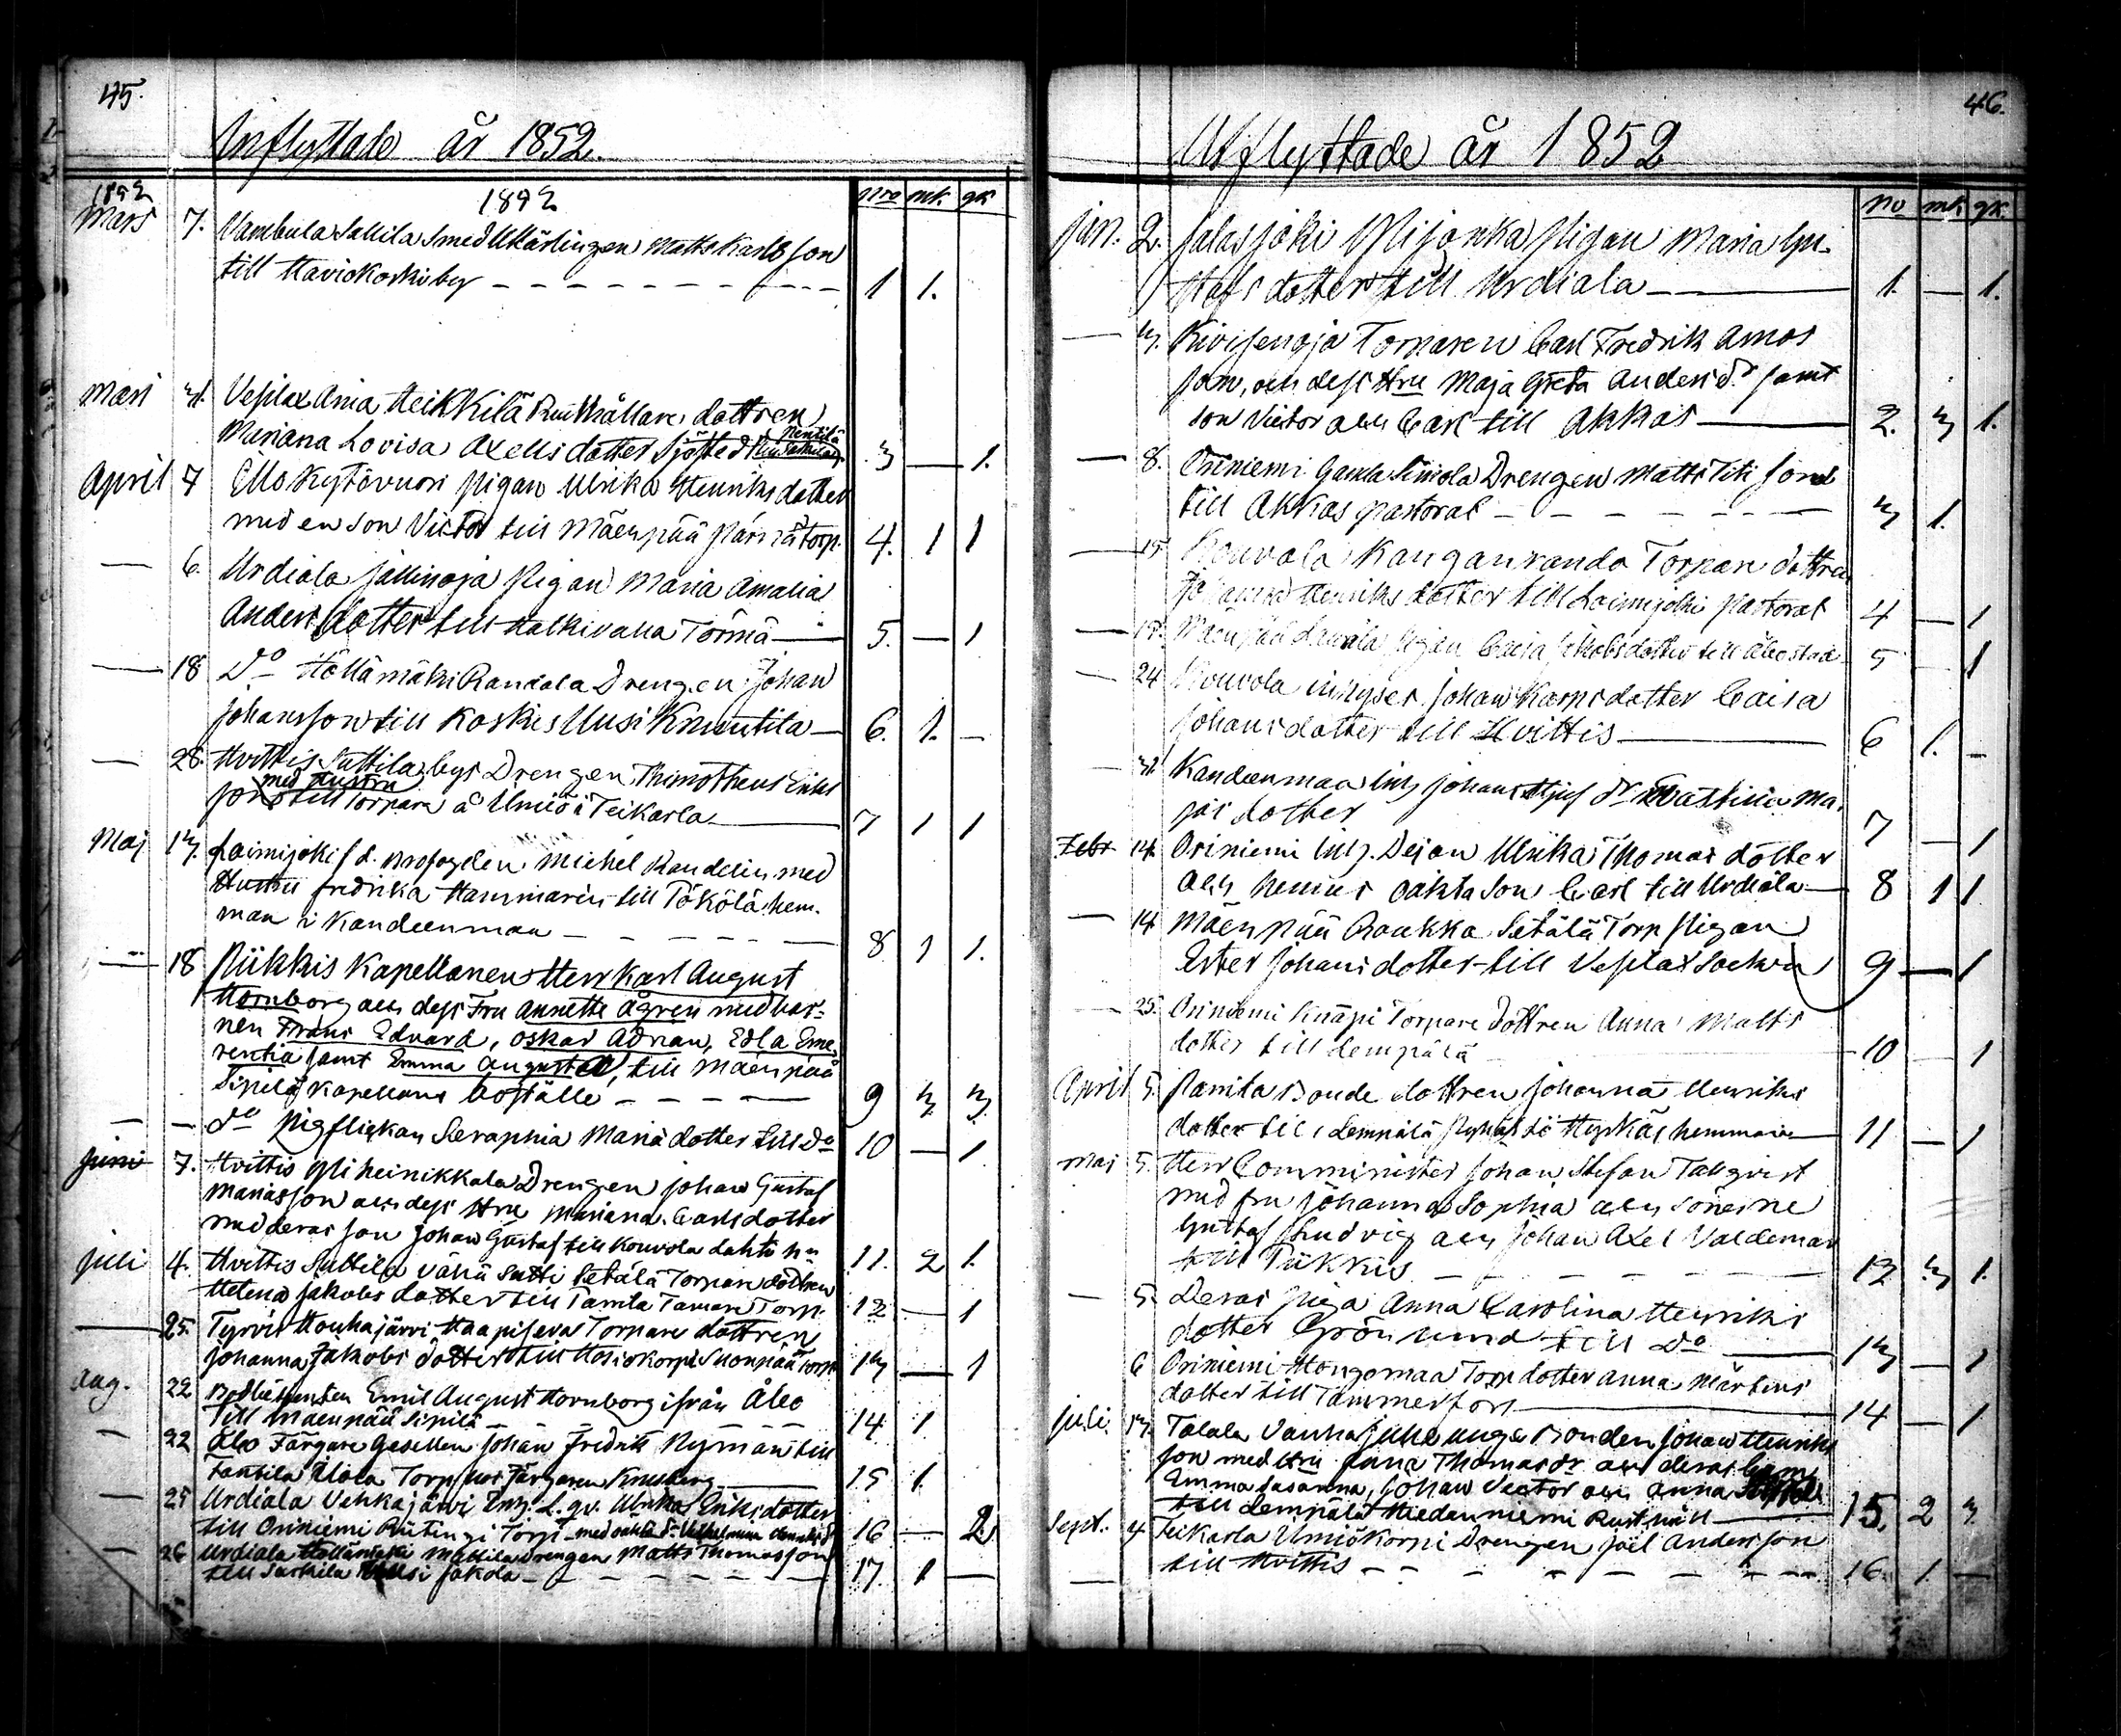 45.
Inflyttade år 1852.
1852 1852 nro mk. qk
Mars 7. Vambula Sallila Smed Lärlingen Matts Karlsson
till Haviokoskiby 1 1.
Mars 31. Vesilax Ania Heikkilä Rusthållare dottren
Mariana Lovisa Axelsdotter Sjöstedt Pentilä 3 — 1.
April 4 Ello Kytövuori pigan Ulrika Henriksdotter
med en son Victor till Mäenpää torp. 4. 1 1
— 6. Urdiala Jallinoja Pigan Maria Amalia
Anders dotter till Halkivaha Törmä 5. — 1
— 18 Do Höllämäki Randala Drengen Johan
Johansson till Koskis Uusi Knuutila 6. 1. —
— 28. Hvittis Suttila bys Drengen Thimotheus Eriks
med Hustru
son till Torpare å Umiö i Teikarla 7 1 1
Maj 13. Loimijoki f d. Brofogden Michel Randelin med
Hustru Fredrika Hammarin till Pökölä hem-
man i Kandeenmaa 8 1 1.
— 18 Piikkis Kapellanen Herr Karl August
Hornborg och dess Fru Annette Ågren med bar-
nen Frans Edvard, Oskar Adrian, Edla Eme-
rentia samt Emma Augusta, till Mäenpää
Sipilä Kapellans Boställe 9 3 3.
— — do Pigflickan Seraphia Mariadotter till do 10 — 1.
Juni 7. Hvittis Yliheinikkala Drengen Johan Gustaf
Mariasson och dess Hru Mariana Carlsdotter
med deras son Johan Gustaf till Kouvola Lahti 11. 2 1.
Juli 4. Hvittis Suttila Vähä Sutti Setälä Torpare dottren
Helena Jakobs dotter till Tamare Torp. 12 — 1
— 25. Tyrvis Houhajärvi Haapiseva Torpare dottren
Johanna Jakobs dotter till Torp 13 — 1
Aug. 22 Emil August Hornborg ifrån Åbo
Till Mäenpää Sipilä 14. 1.
— 22 Åbo Färgare Gesellen Johan Fredrik Nyman till
Torp hos Färgaren 15 1.
— 25 Urdiala Vehkajärvi Inh. Ulrika Eriksdotter
till Oriniemi Torp med oäkta dr Vilhelmina 16 — 2
— 26 Urdiala Höllämäki Mattila Drengen Matts Thomasson
till 17. 1 —
46.
Utflyttade år 1852
no mk. qk.
Jan. 2. Jalasjoki Ylijonka Pigan Maria Gu-
stafs dotter till Urdiala 1. — 1.
— 3. Kivisenoja Torparen Carl Fredrik Amos
son, och dess Hru Maja Greta Anders dr samt
son Victor och Carl till Akkas 2. 3 1.
— 8. Oriniemi Gamla Simola Drengen Matts Titi son
till Akkas pastorat 3 1.
— 15. Kouvola Kanganranda Torpare dottren
Johanna Henriks dotter till Loimijoki Pastorat 4 — 1
— 17. Mäenpää pigan Caisa Jakobsdotter till Åbo stad 5 — 1
— 24 Kouvola inhyses Johan Karps dotter Caisa
Johans dotter till Hvittis 6 1. —
— 31. Kandeenmaa Inh Johan
jas dotter 7 — 1
Febr 14. Oriniemi Inh. Dejan Ulrika Thomas dotter
och hennes oäkta son Carl till Urdiala 8 1 1
— 14. Mäenpää Raukka Setälä Torp Pigan
Ester Johans dotter till Vesilax Socken 9 — 1
— 25. Oriniemi Knäpi Torpare dottren Anna Matts
dotter till Lempälä 10 — 1
April 5. Bonde dottren Johanna Henriks
dotter till Lempälä hemman 11 — 1
Maj 5. Herr Comminister Johan Stefan Tallqvist
med fru Johanna Sophia och sönerne
Gustaf Ludvig och Johan Axel Valdemar
till Piikkis 12 3 1.
— 5. Deras piga Anna Carolina Henriks
dotter Grönlund till do 13 — 1
6 Oriniemi Hongomaa Torp dotter Anna Mårtens
dotter till Tammerfors 14 — 1
Juli 13. Talala Vanha unga Bonden Johan Henriks
son med Hru Anna Thomas dr och deras barn
Emma Susanna, Johan Victor och Anna
till Lempälä Hiedanniemi Rusthåll 15. 2 3
Sept. 4 Teikarla Umiökorpi Drengen Joel Andersson
till Hvittis 16. 1. —